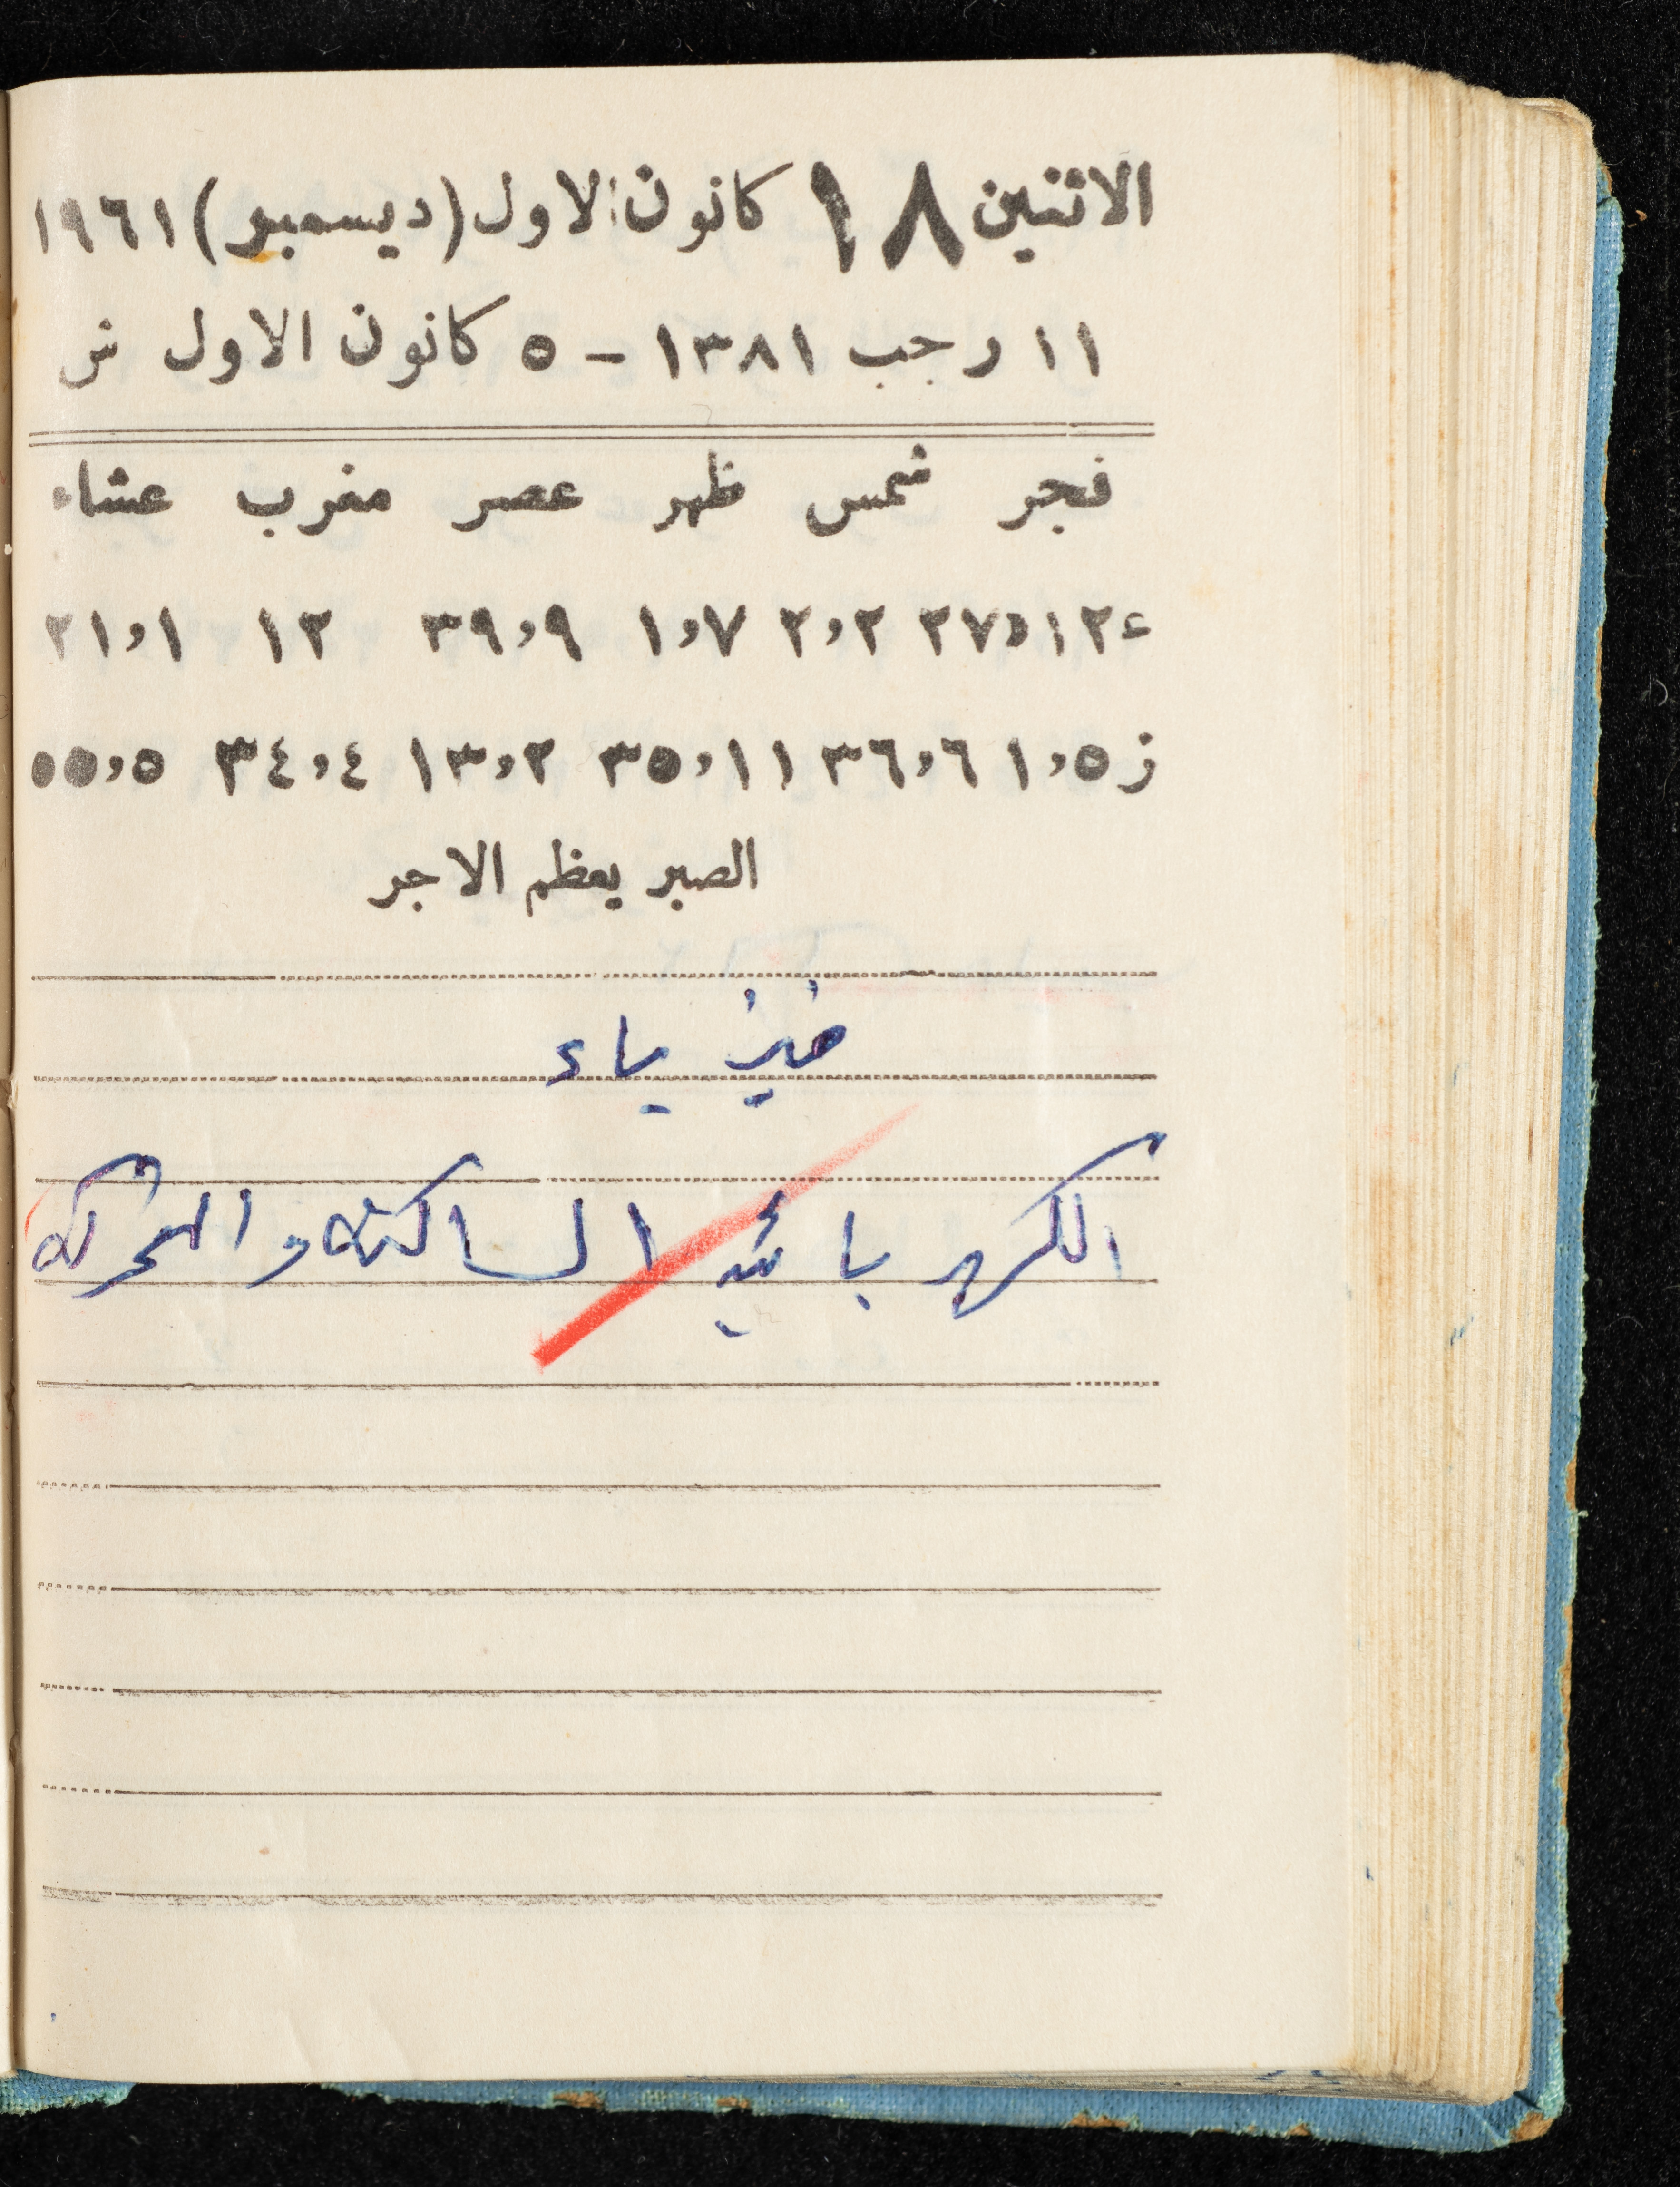 الاثنين ١٨ كانون الاول (ديسمبر) ١٩٦١
١١ رجب ١٣٨١ - ٥ كانون الاول ش
فجر شمس ظهر عصر مغرب عشاء
ع ١٢،٢٧ ٢،٢ ٧،١ ٩،٣٩ ١٢ ١،٢١
ز ٥،١ ٦،٣٦ ١١،٣٥ ٢،١٣ ٤،٣٤ ٥،٥٥
الصبر يعظم الاجر
فيزياء
الكهربائية الساكنة والمحركة